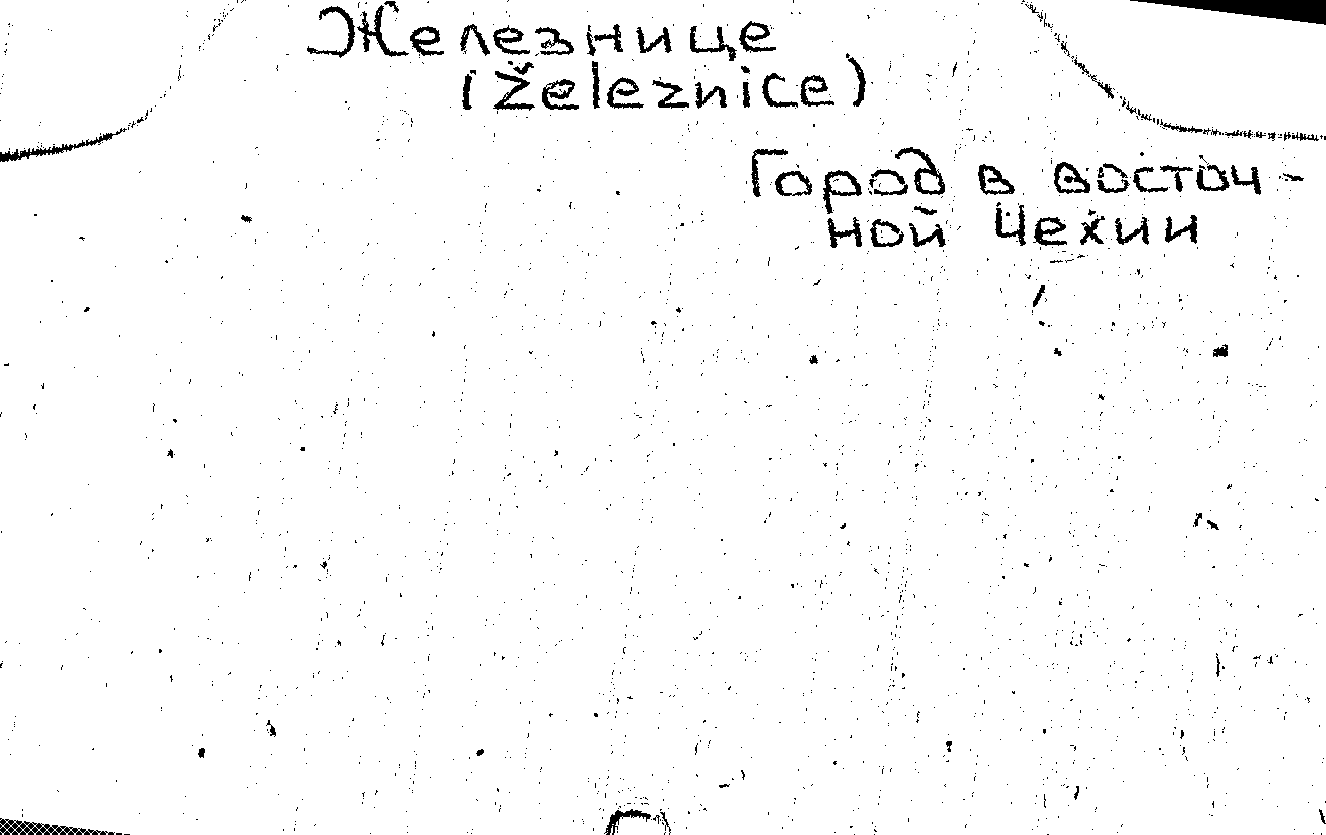 Железнице
(Železnice)
Город в восточ-
ной Чехии